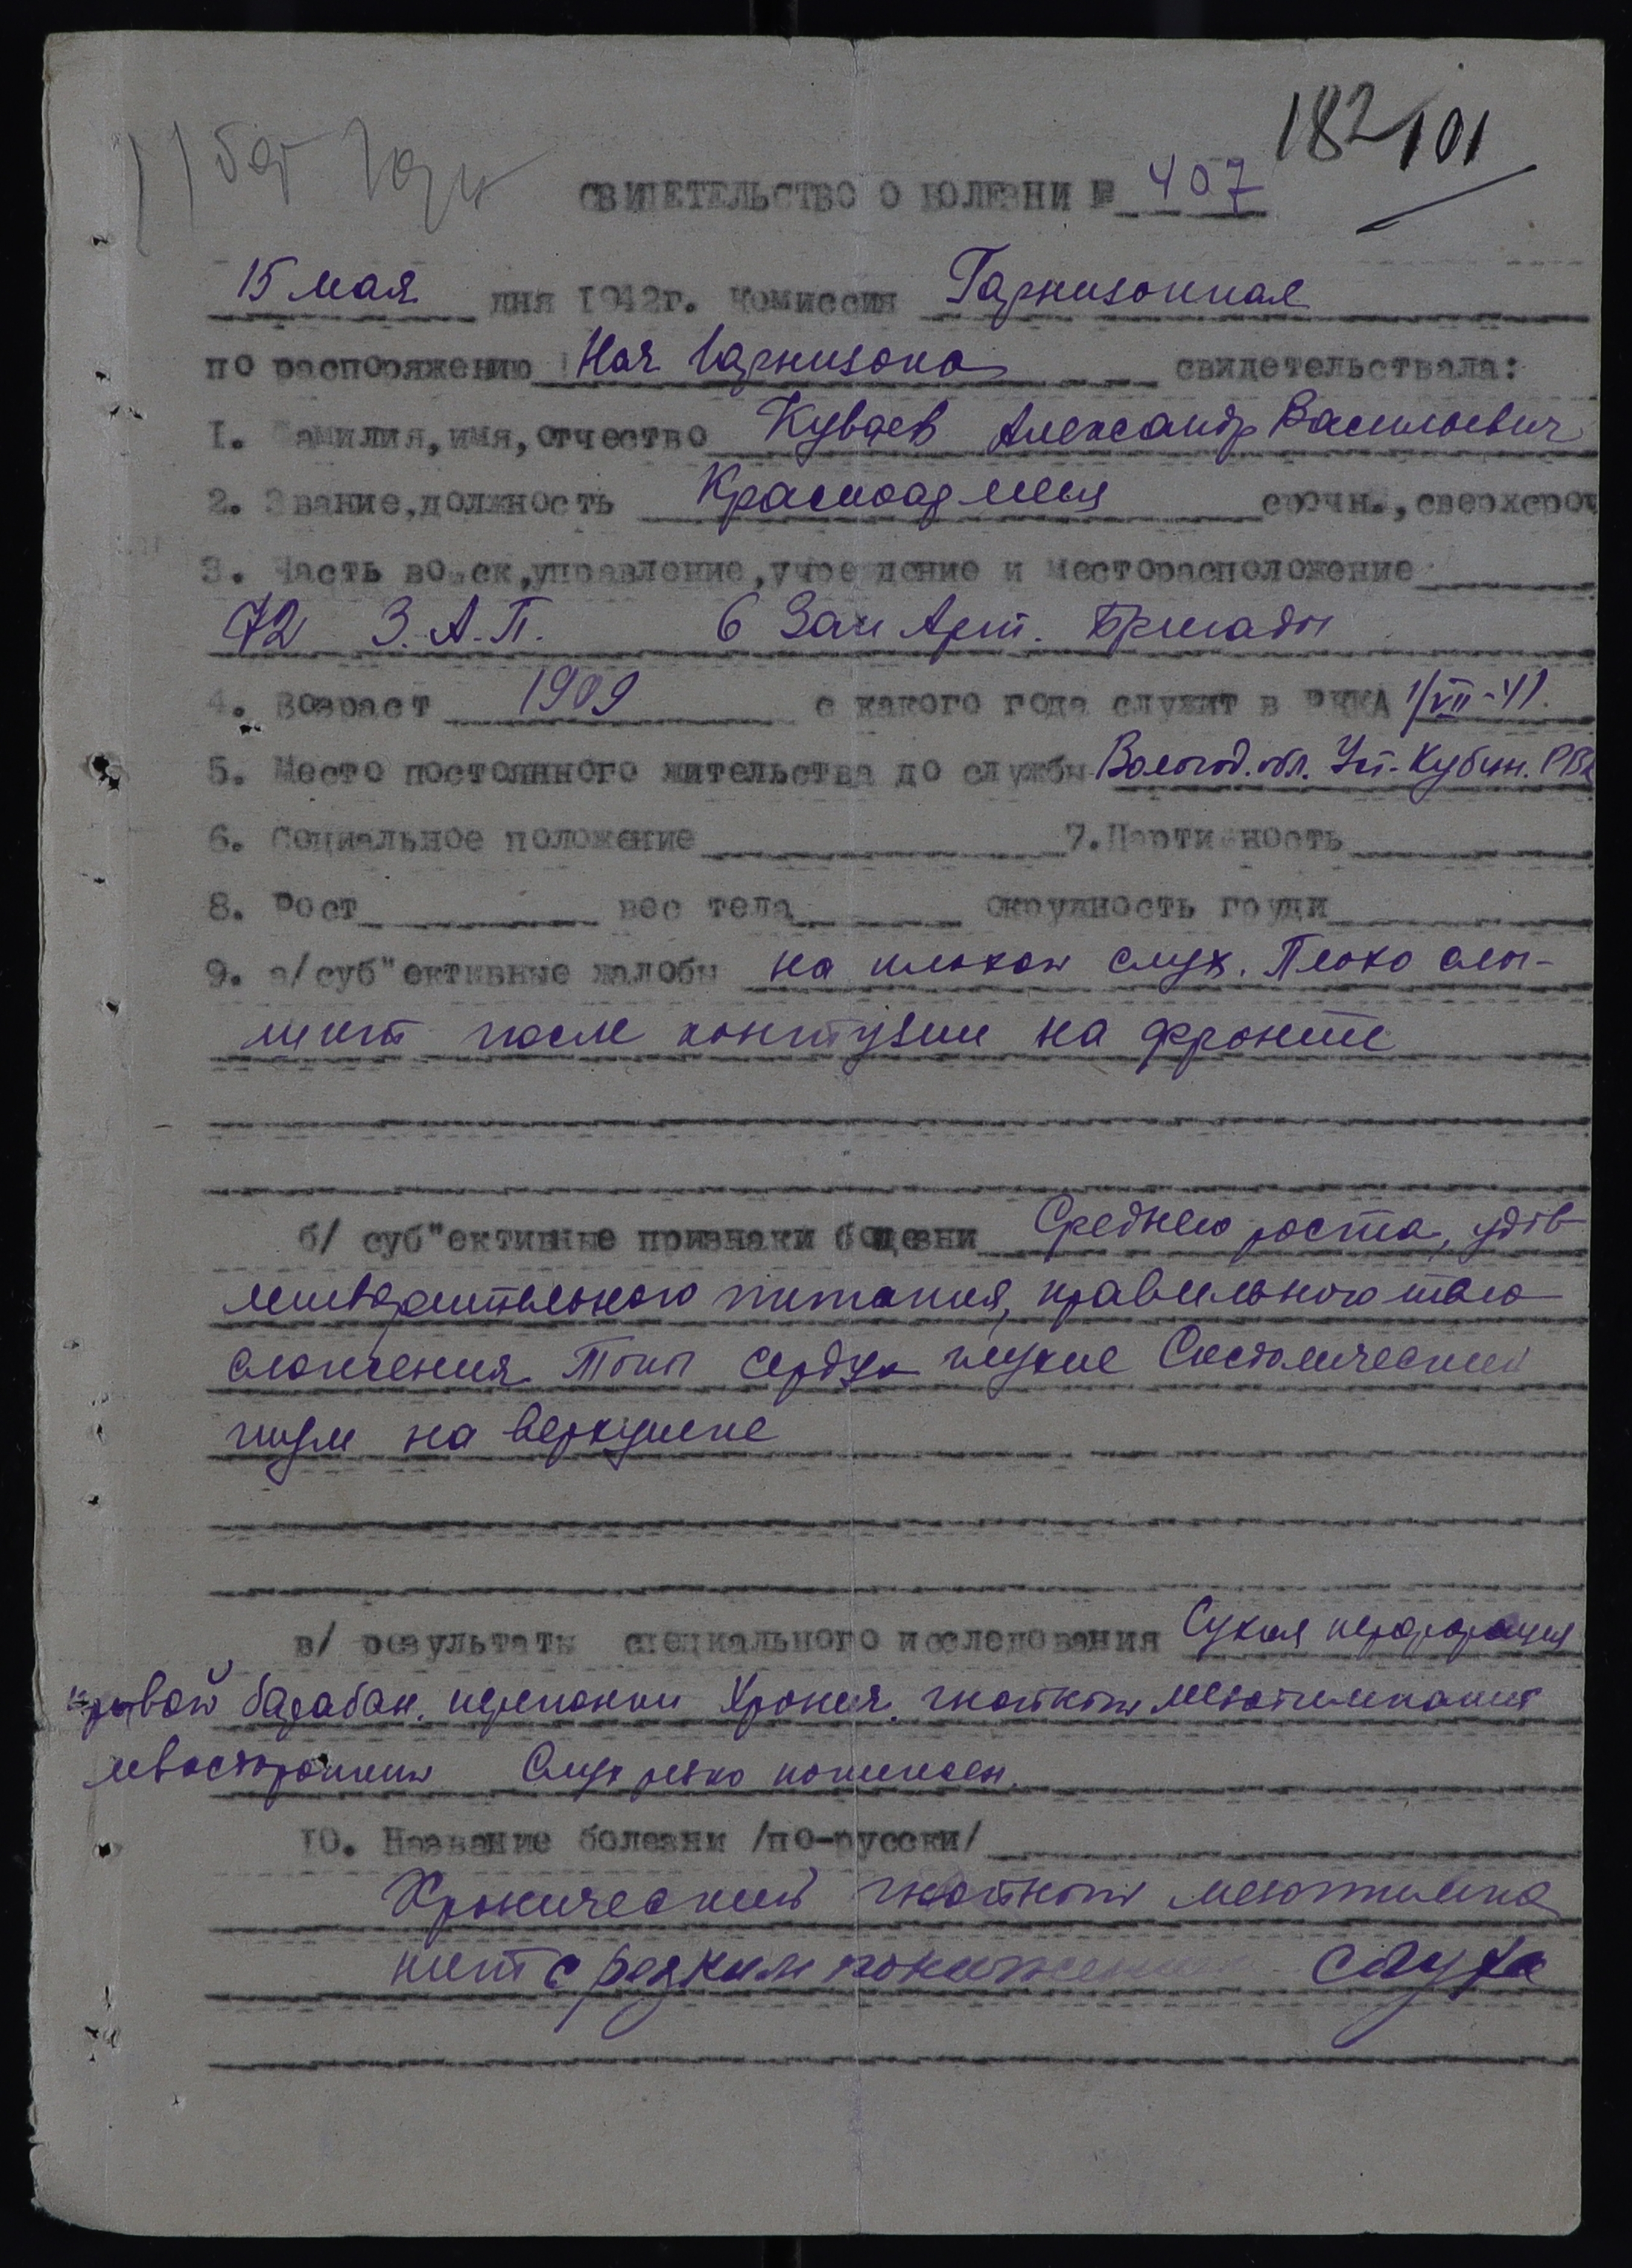 182 101
СВИДЕТЕЛЬСТВО О БОЛЕЗНИ № 407
15 мая дня 1942г. Комиссия Гарнизонная
по распоряжению Нач гарнизона свидетельствала:
I. Фамилия, имя, отчество Куваев Александр Васильевич
2. Звание, должность Красноармеец срочн., сверхсроч
3. Часть войск, управление, учреждение и месторасположение
72 З.А.П. 6 Зап Арт. Бригады
4. Возраст 1909 с какого года служит в РККА 1/VII-41.
5. Место постоянного жительства до службы Вологод. обл. Уст-Кубин. РВК
6. Социальное положение 7. Партийность
8. Рост вес тела окружность груди
9. а/суб"ективные жалобы на плохой слух. Плохо слы-
шит после контузии на фронте
б/ суб"ективные признаки болезни Среднего роста, удов
летворительного питания, правильного тело
сложения. Тоны сердца глухие Систолический
шум на верхушке
в/ результаты специального исследования Сухая перфорация
правой барабан. перепонки Хронич. гнойный мезотимпанит
левосторонний Слух резко понижен.
10. Название болезни /по-русски/
Хронический гнойный мезотимпа
нит с резким понижением слуха